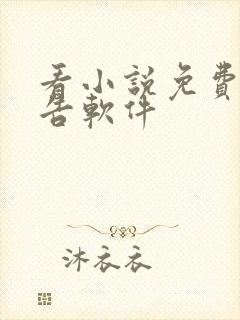 看小說免費
告軟件
沐衣衣